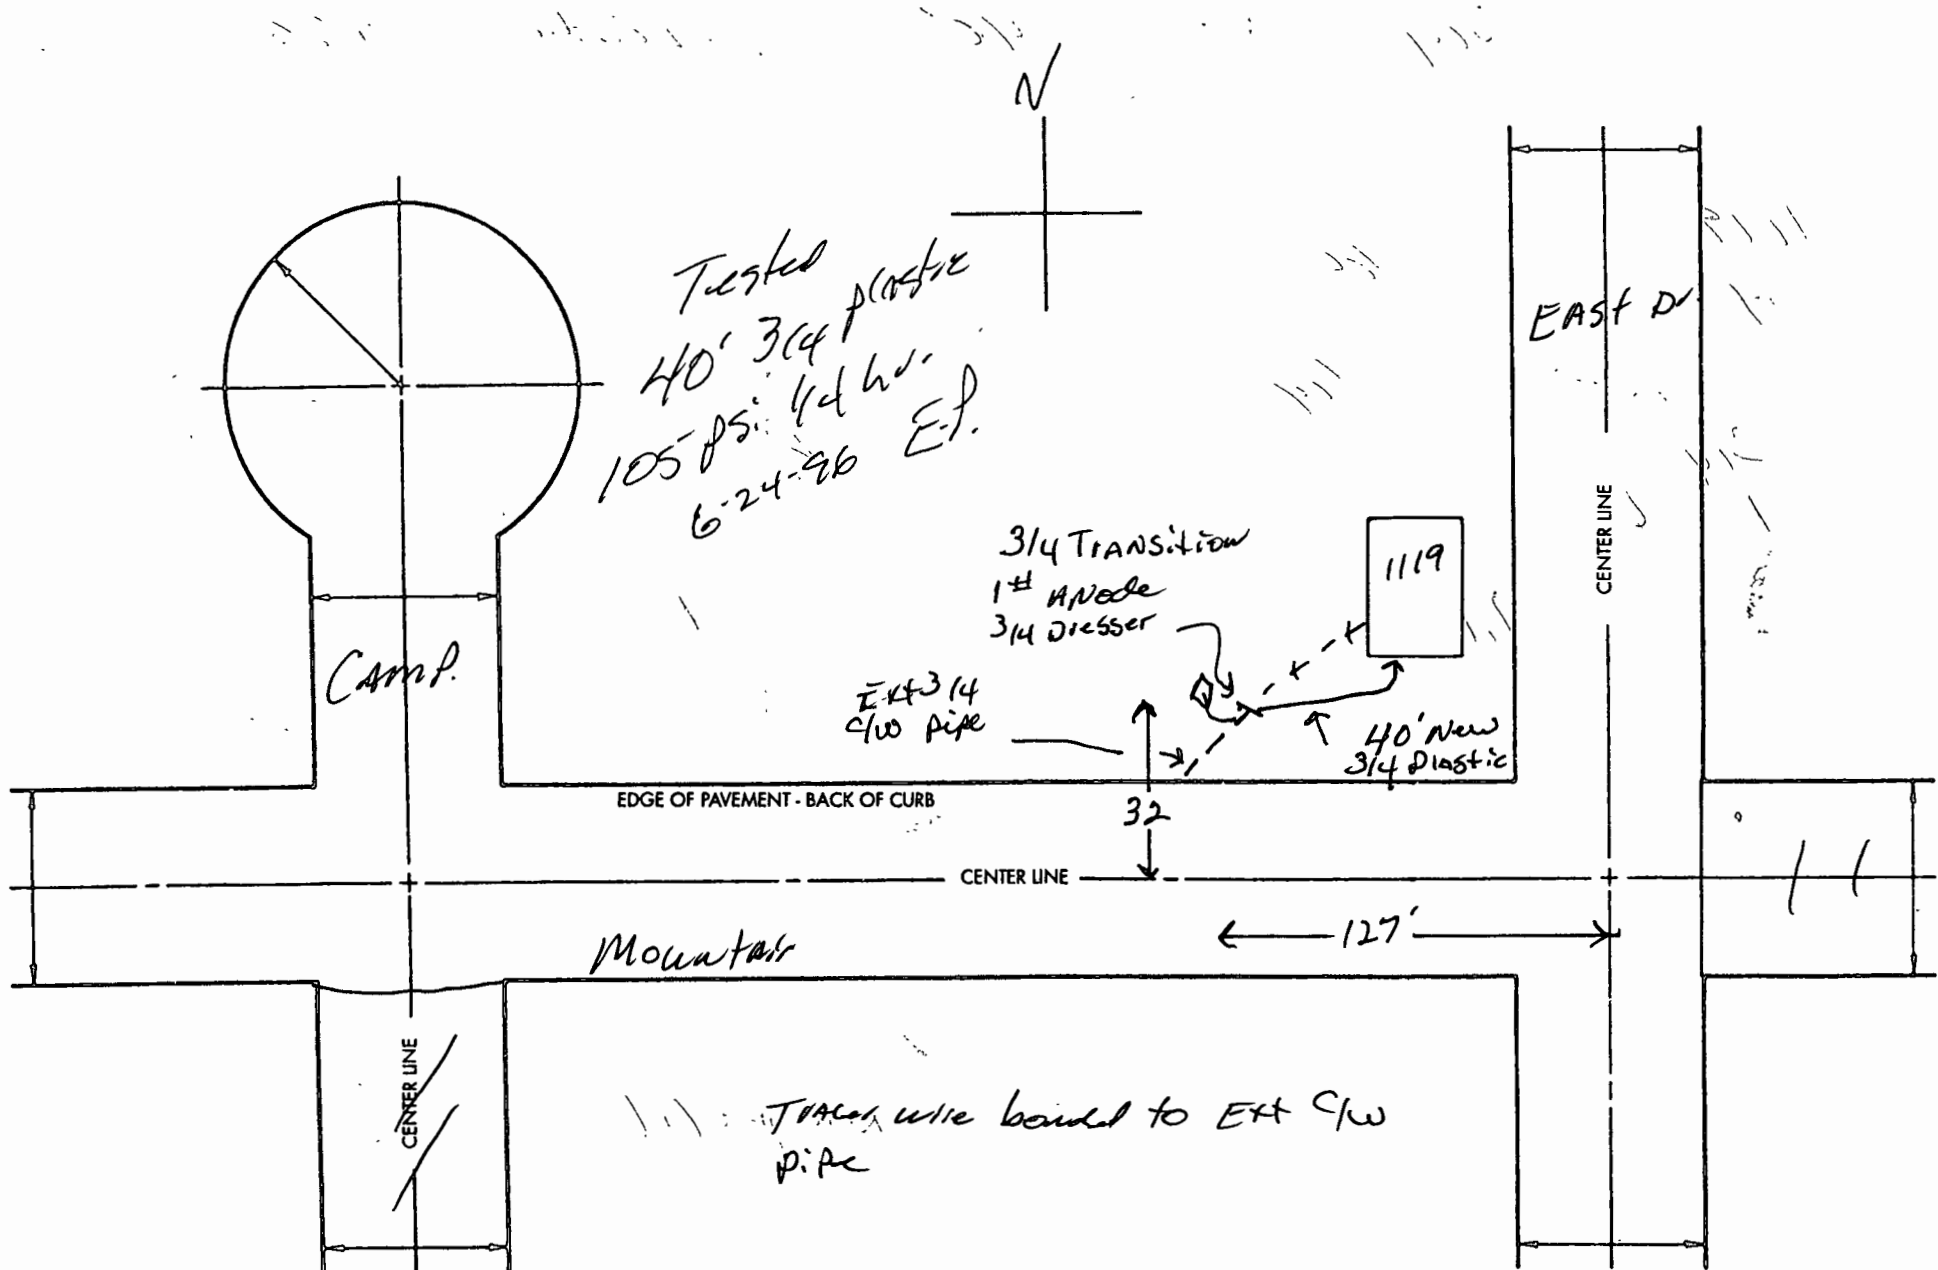 N
Tested
40' 3/4 plastic
105 psi 1/4 hr.
6-24-96 E.P.
EAST Dr
CENTER LINE
3/4 TRANSITION
1# ANode
3/4 Dresser
1119
CAMP.
Ext 3/4
C/W pipe
40' New
3/4 Plastic
EDGE OF PAVEMENT - BACK OF CURB
32
CENTER LINE
127'
Mountair
CENTER LINE
Tracer wire bonded to Ext C/W
pipe